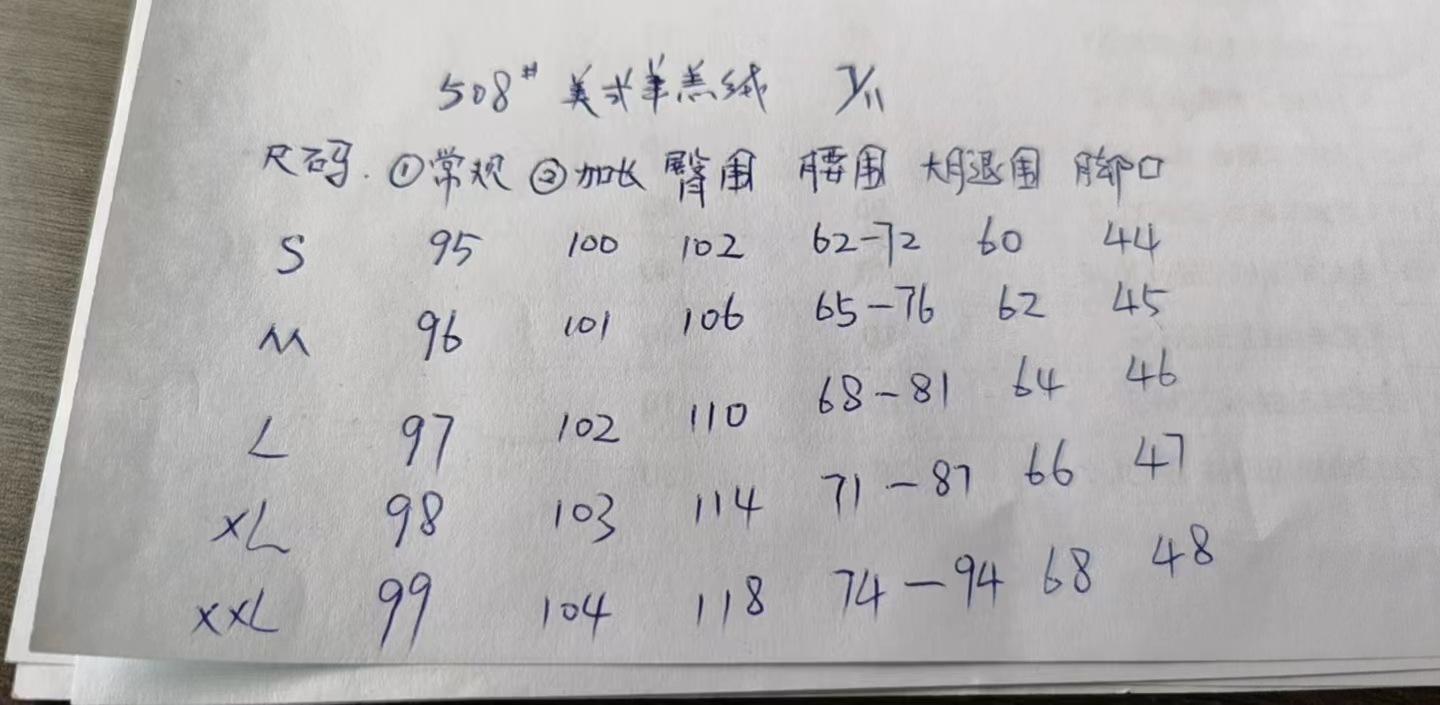 508# 美式羊羔绒
尺码. ①常规 ②加长 臀围 腰围 大腿围 脚口
S 95 100 102 62-72 60 44
M 96 101 106 65-76 62 45
L 97 102 110 68-81 64 46
XL 98 103 114 71-87 66 47
XXL 99 104 118 74-94 68 48